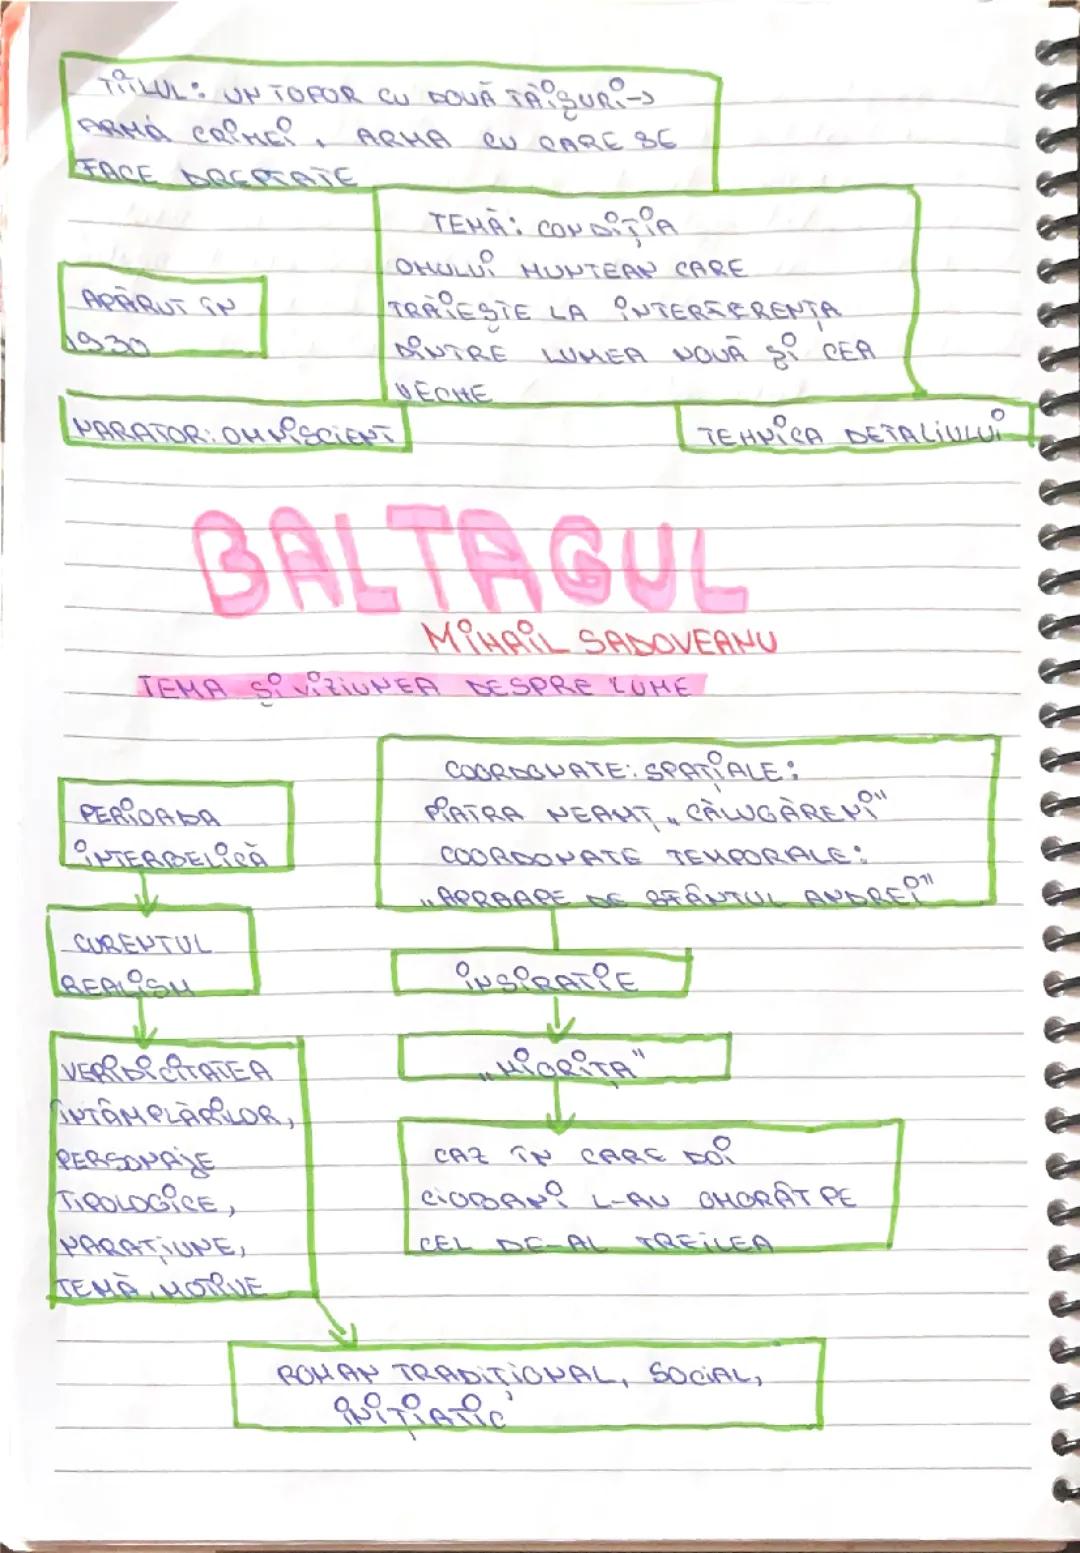 TITLUL: UN TOPOR CU DOUĂ TĂIȘURI->
ARMA CRIMEI, ARMA CU CARE SE
FACE DREPTATE
TEMĂ: CONDIȚIA
OMULUI MUNTEAN CARE
TRĂIEȘTE LA INTERFERENȚA
DINTRE LUMEA NOUĂ ȘI CEA
VECHE
APĂRUT ÎN
1930
NARATOR: OMNISCIENT
TEHNICA DETALIULUI
BALTAGUL
MIHAIL SADOVEANU
TEMA ȘI VIZIUNEA DESPRE LUME
COORDONATE: SPAȚIALE:
PIATRA NEAMȚ, „CĂLUGĂRENI"
COORDONATE TEMPORALE:
„APROAPE DE SFÂNTUL ANDREI"
PERIOADA
INTERBELICĂ
CURENTUL
REALISM
VERIDICITATEA
ÎNTÂMPLĂRILOR,
PERSONAJE
TIPOLOGICE,
NARAȚIUNE,
TEMĂ, MOTIVE
INSPIRATIE
„MIORIȚA"
CAZ ÎN CARE DOI
CIOBANI L-AU OMORÂT PE
CEL DE-AL TREILEA
ROMAN TRADIȚIONAL, SOCIAL,
INIȚIATIC